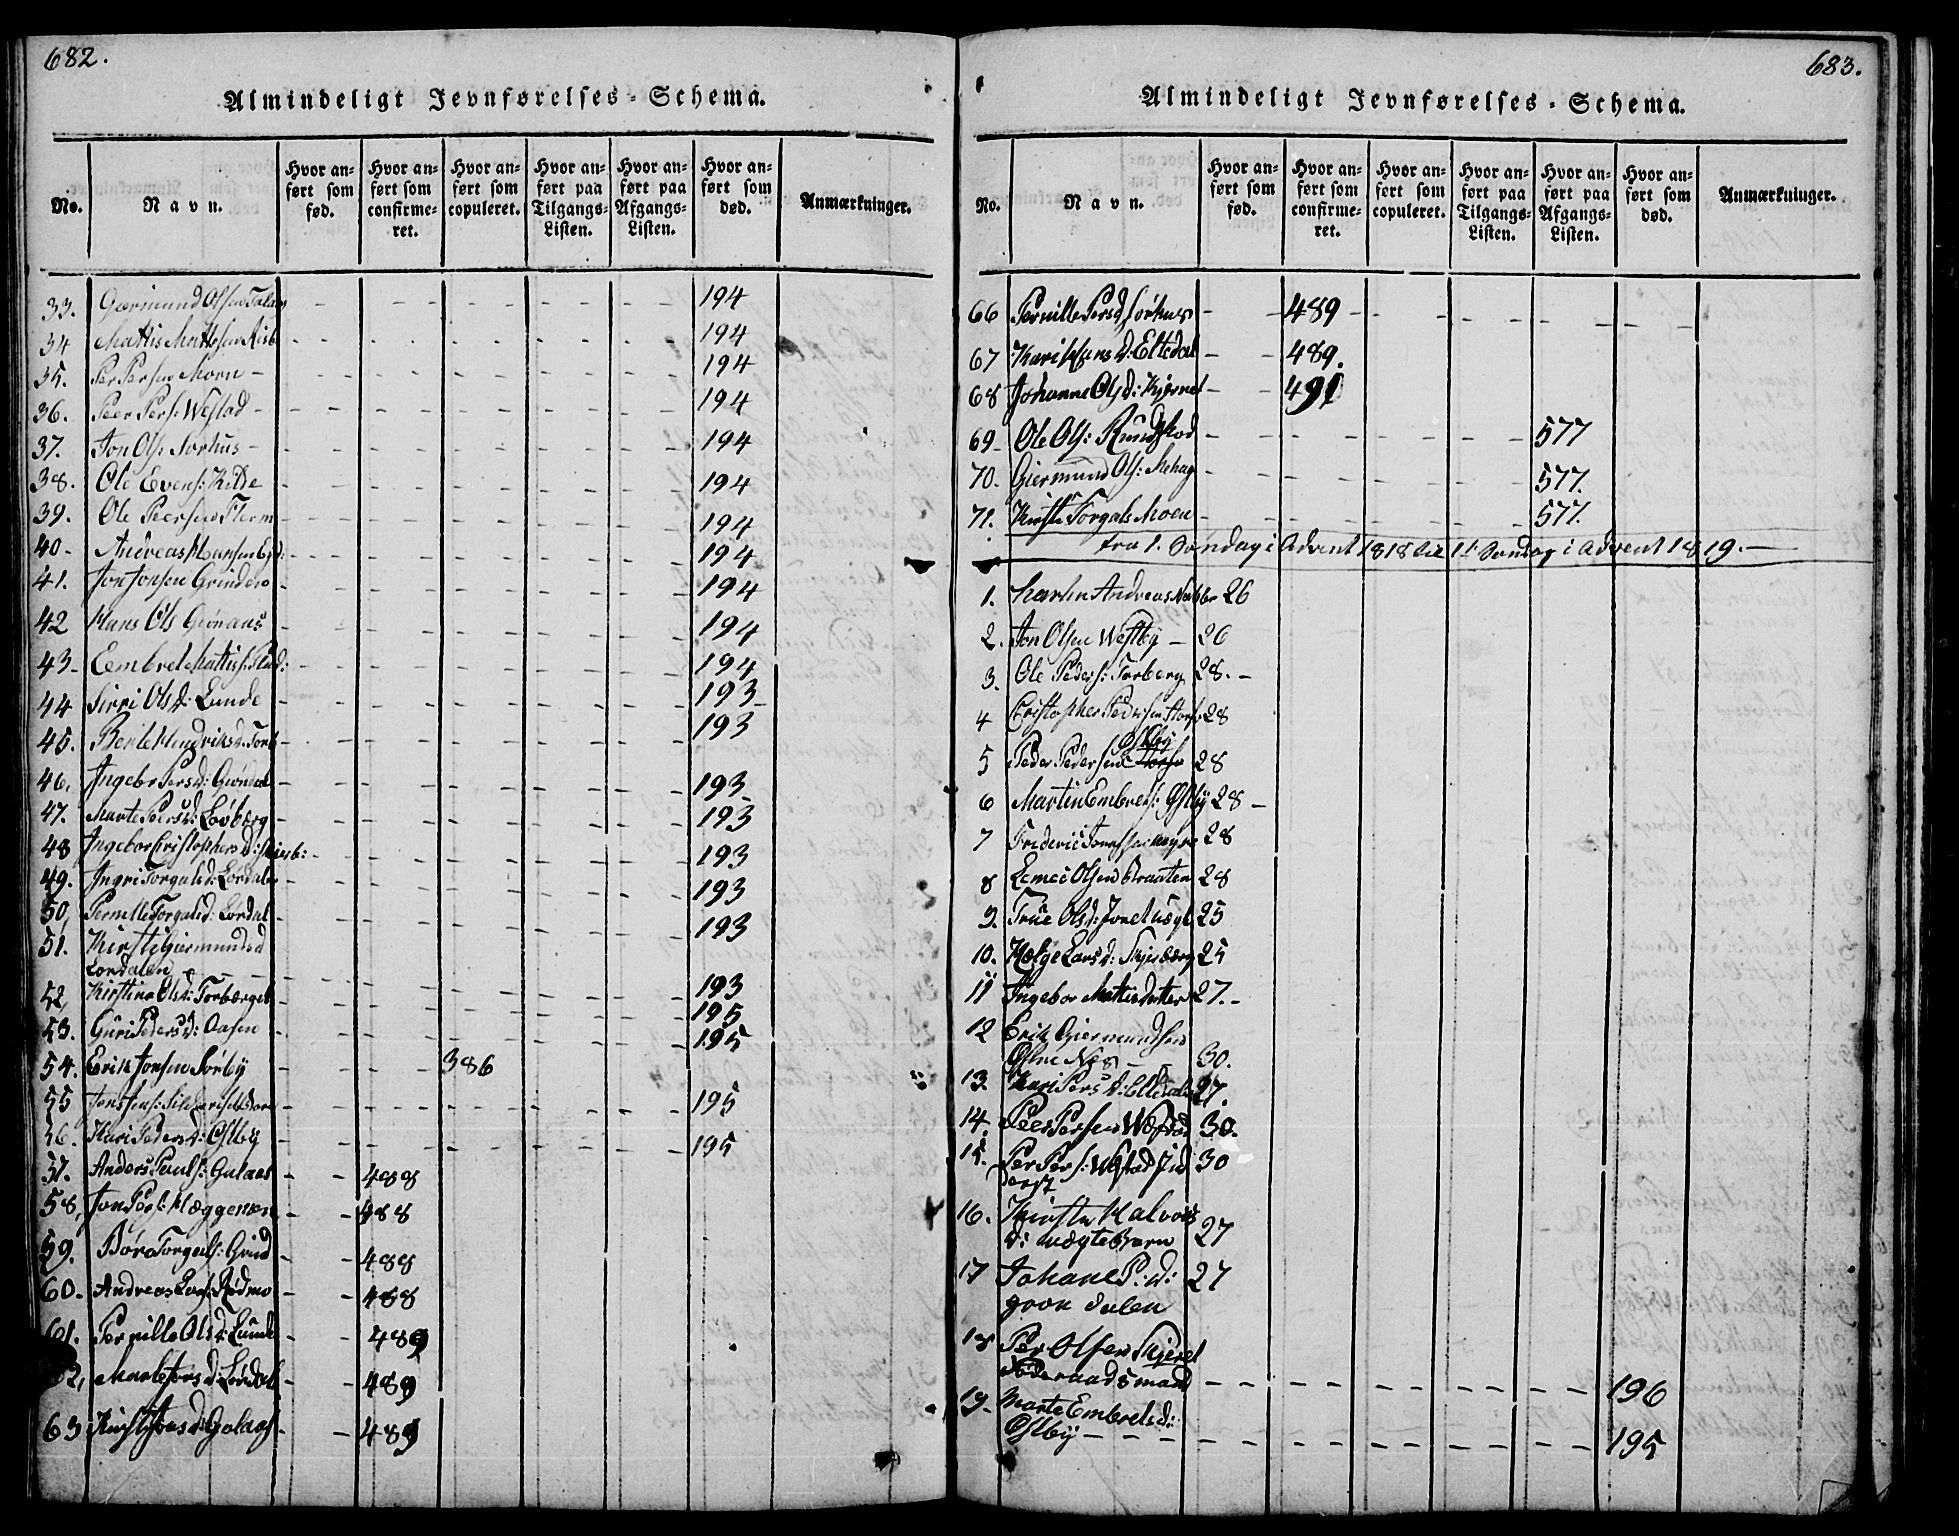 682.
Almindeligt Jevnførelses-Schema.
No.
Navn.
Hvor anført som fød.
Hvor anført som confirmeret.
Hvor anført som copuleret.
Hvor anført paa Tilgangs-Listen.
Hvor anført paa Afgangs-Listen.
Hvor anført som død.
Anmærkninger.
33. Giermund Olsen 194
34 Mattis Mattisen 194
35. Per Persen Moen 194
36. Peer Pers: Westad 194
37. Jon Ols: Sorhus 194
38. Ole Evens: Kilde 194
39. Ole Peersen 194
40 Andreas Hansen 194
41. Jon Jonsen Grindero 194
42 Hans Ols 194
43 Eembret Mattis: 194
44 Sirri Olsd: Lunde 193
45. Berte Hendriksd: Torb 193
46. Ingebor Persd: 193
47. Marte Peersd: Lovberg 193
48 Ingebor Cristophersd: 193
49. Ingri Torgalsd: Lordalen 193
50, Pernille Torgalsd: Lordal 193
51. Kirsti Giermundsd
Lordalen 193
52 Kirstine Olsd: Torberget 195
53. Guri Pedersd: Aasen 195
54. Erik Jonsen Sorby 386
55 195
56. Kari Pedersd: Østby 195
57. Anders Pauls: Galaas 488
58, Jon Pers: Hæggemoen 488
59. Børe Torgals: Grind 488
60. Andreas Lars: Rødmo 488
61. Pernille Olsd: Lunde 489
62, Marte Jonsd: Lordal 489
63 Kirsti Jonsd: Galaas 489
683.
Almindeligt Jevnførelses-Schema.
No.
Navn.
Hvor anført som fød.
Hvor anført som confirmeret.
Hvor anført som copuleret.
Hvor anført paa Tilgangs-Listen.
Hvor anført paa Afgangs-Listen.
Hvor anført som død.
Anmærkninger.
66 Pernille Persd Sorhus 489
67 Kari Hansd: Eltedal 489.
68 Johanne Olsd: 491
69 Ole Ols: Rundflod 577
70. Giermund Ols: Mehag 577.
71. Kirsti Torgals Moen 577.
fra 1. Søndag i Advent 1818 til 1. Søndag i Advent 1819.
1. Martin Andreas 26
2. Jon Olsen Westby 26
3. Ole Peders: Torberg 28.
4 Cristopher Pedersen 28
Østby
5 Peder Pedersen 28
6 Martin Embrets: Østby 28
7 Frederic Jonassen 28
8 Olsen Braaten 28
9. True Olsd: 25
10. Helge Larsd: Skjerberg 25
11 Ingebor Mattisdatter 27.
12 Erik Giermundsen
Østre Næs 30.
13. Kari Persd: Eltedalen 27.
14. Peer Persen Wæstad 30.
15. Per Pers: Westad 30
16. Kirste Halvors
d: uægte Barn 27
17 Johane P: d: 27
dalen
18 Per Olsen
196
19. Marte Embretsd:
Østby 195